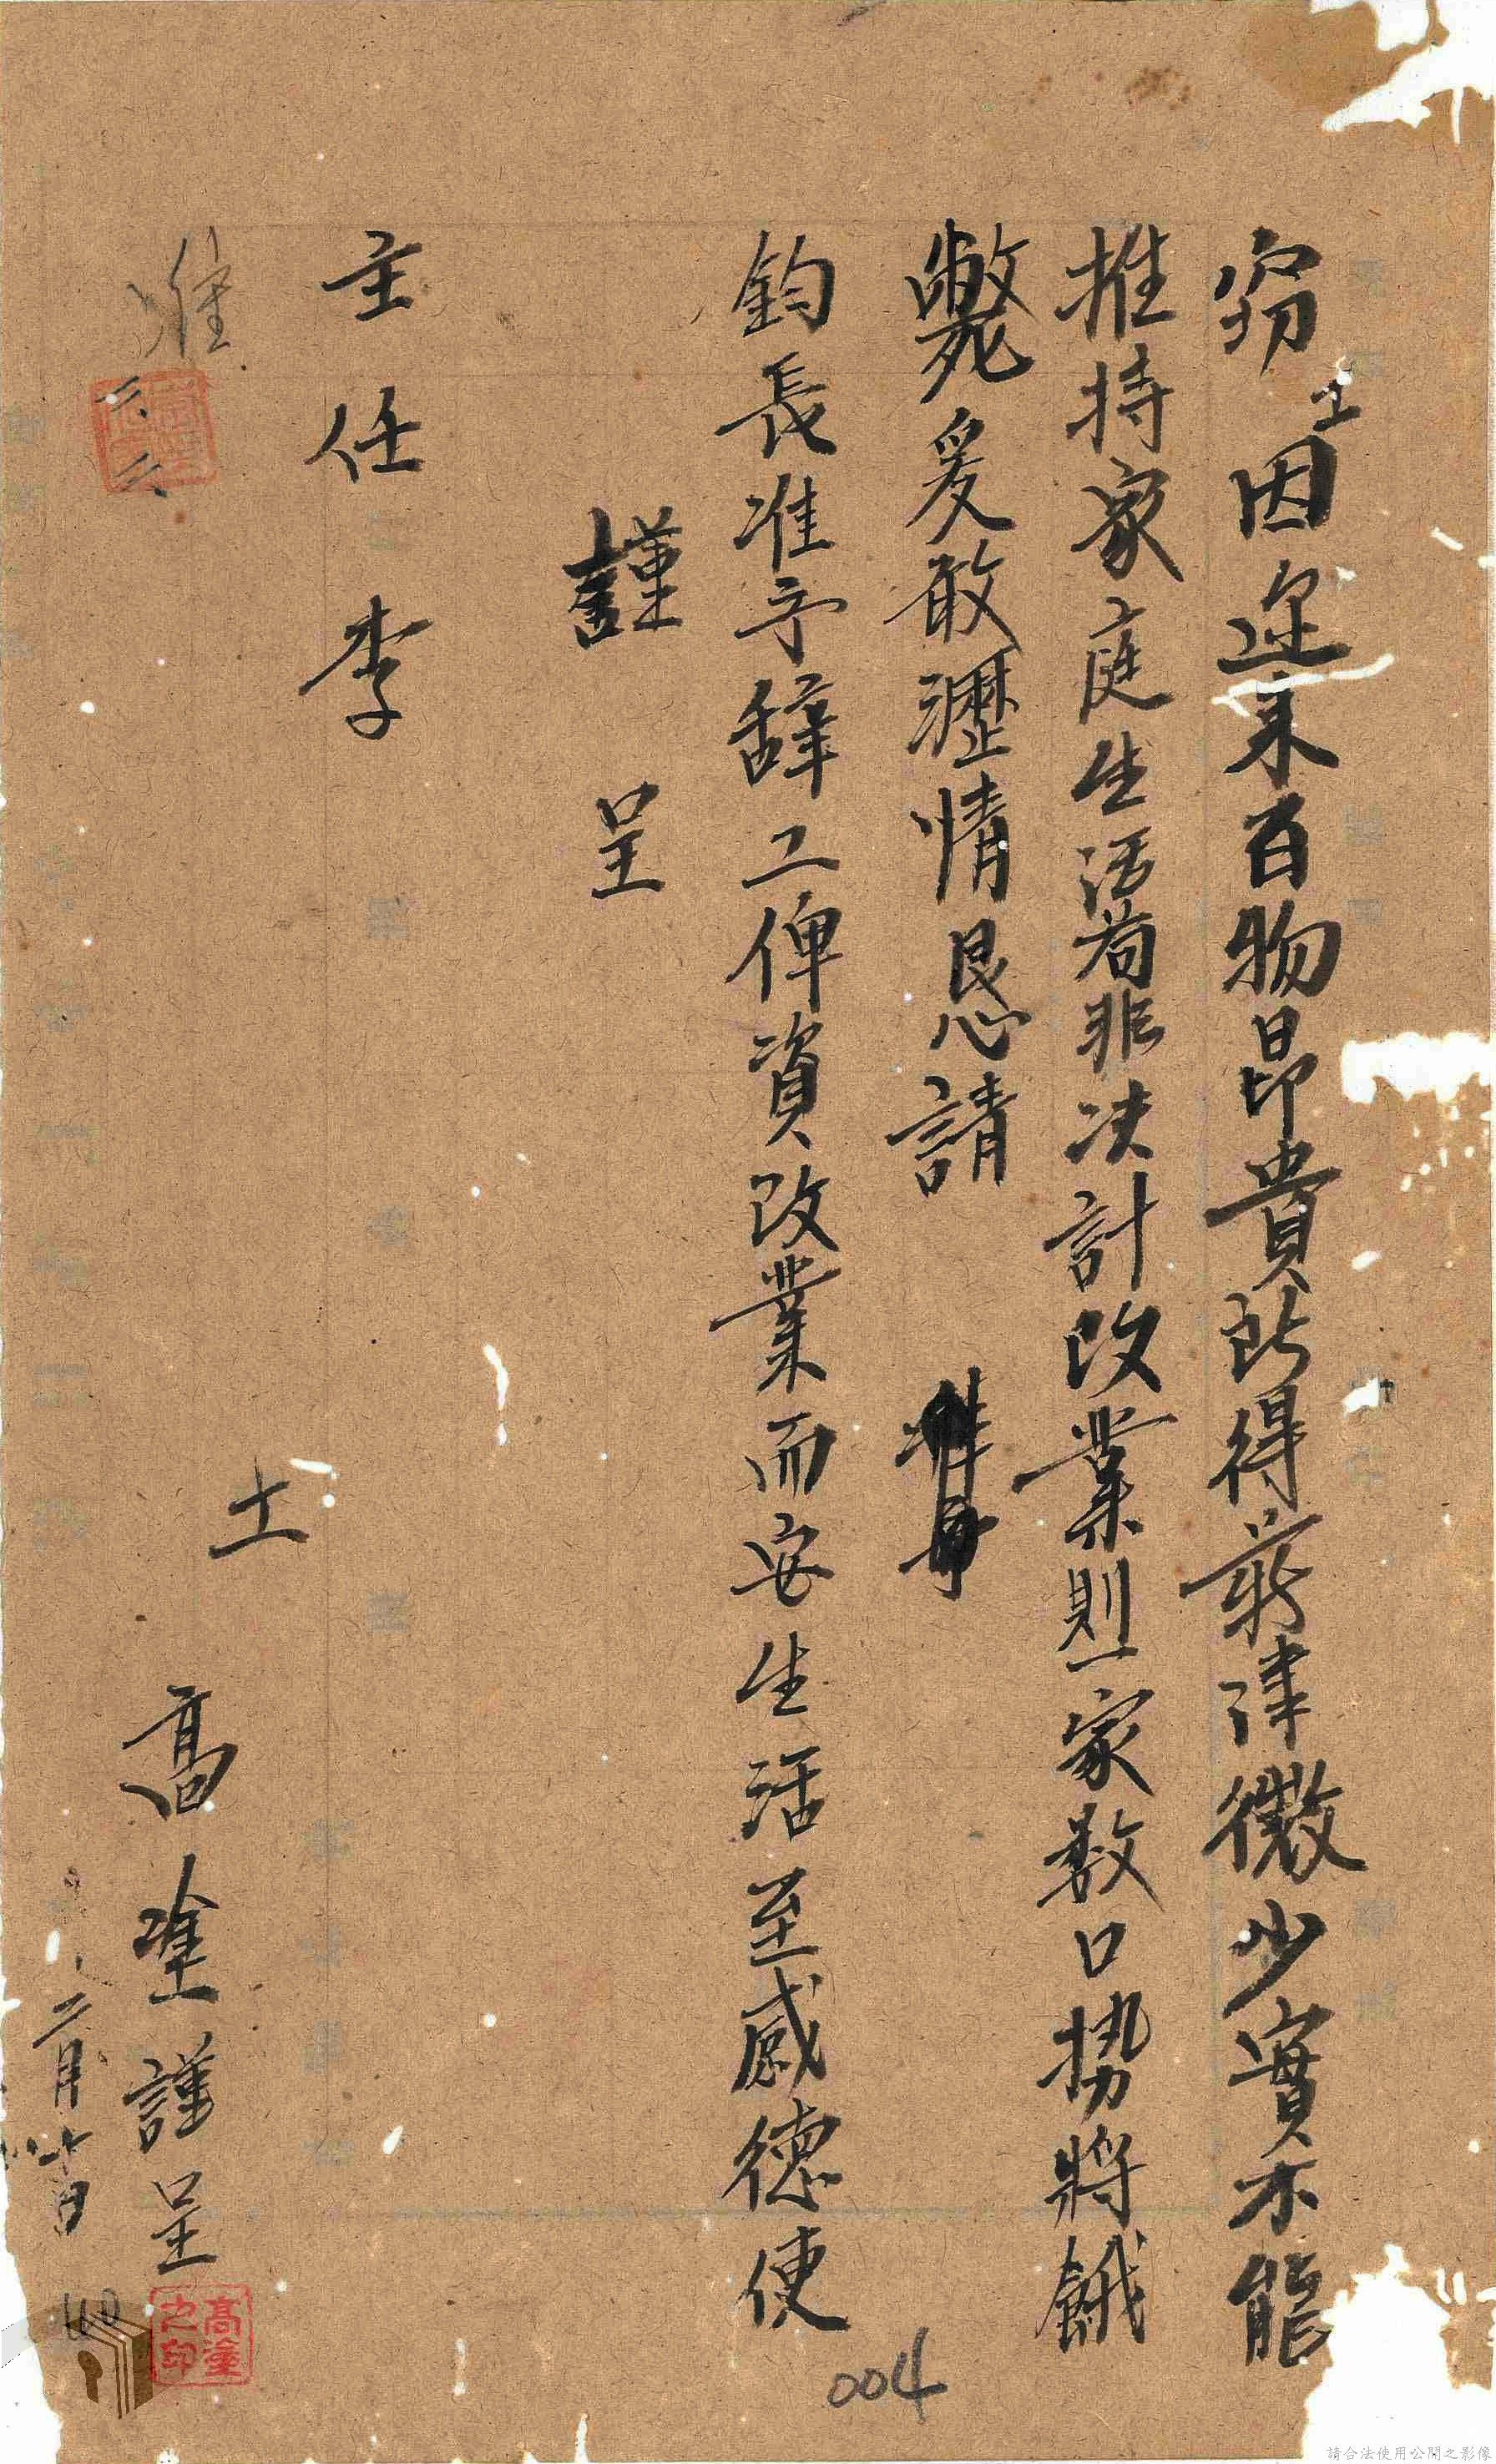 窃工因近来百物昂貴所得薪津微少實不能
推持家庭生活若非决計改業則一家数口势將餓
斃爰敢瀝情恳請
鈞長准予辞工俾資改業而安生活至感德便
謹呈
主任李
准
二、六、
土
高塗謹呈
二月廿日
高塗之印
004
請合法使用公開之影像